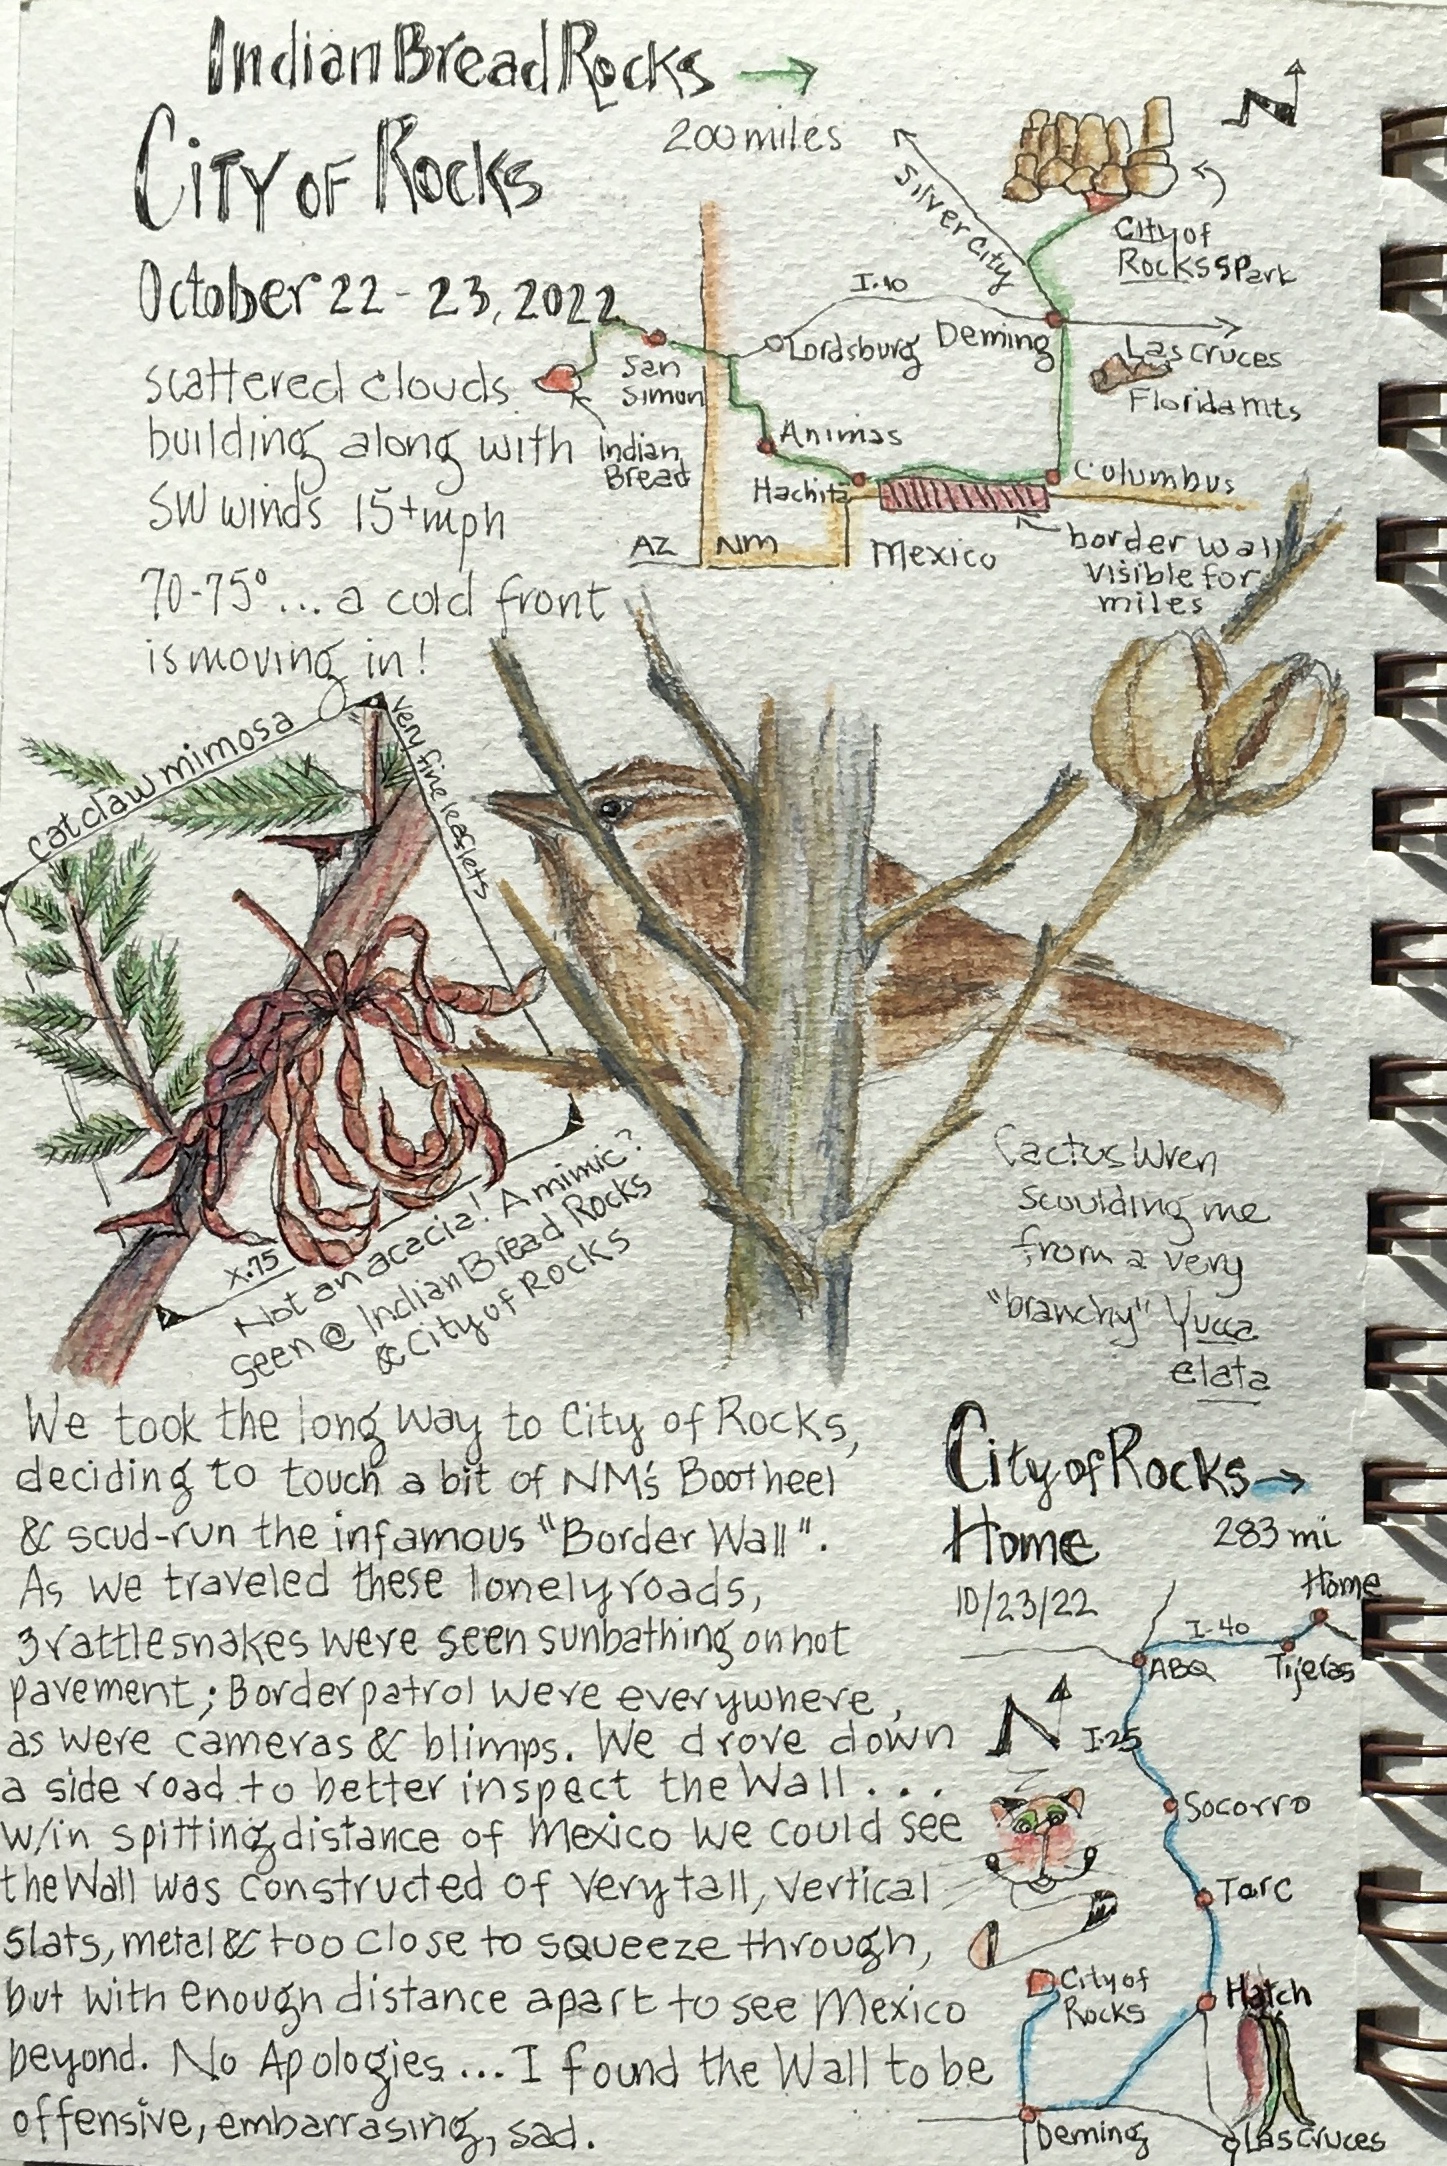 Indian Bread Rocks →
200 miles
City of Rocks
October 22-23, 2022
scattered clouds
building along with
SW winds 15+mph
70-75°... a cold front
is moving in!
N
Silver City
City of
Rocks SPark
I.10
Lordsburg
Deming
Las Cruces
Florida Mts
San
Simon
Indian
Bread
Animas
Hachita
Columbus
AZ
NM
Mexico
border wall
visible for
miles
catclaw mimosa
very fine leaflets
x.75
Not an acacia! A mimic?
Seen @ Indian Bread Rocks
& City of Rocks
Cactus Wren
scoulding me
from a very
"branchy" Yucca
elata
We took the long way to City of Rocks,
deciding to touch a bit of NM's Bootheel
& scud-run the infamous "Border Wall".
As we traveled these lonely roads,
3 rattlesnakes were seen sunbathing on hot
pavement; Border patrol were everywhere,
as were cameras & blimps. We drove down
a side road to better inspect the Wall....
w/in spitting distance of Mexico we could see
the Wall was constructed of very tall, vertical
slats, metal & too close to squeeze through,
but with enough distance apart to see Mexico
beyond. No Apologies... I found the Wall to be
offensive, embarrasing, sad.
City of Rocks →
Home
283 mi
10/23/22
Home
I-40
ABQ
Tijeras
N
I.25
Socorro
TorC
City of
Rocks
Hatch
Deming
Las Cruces